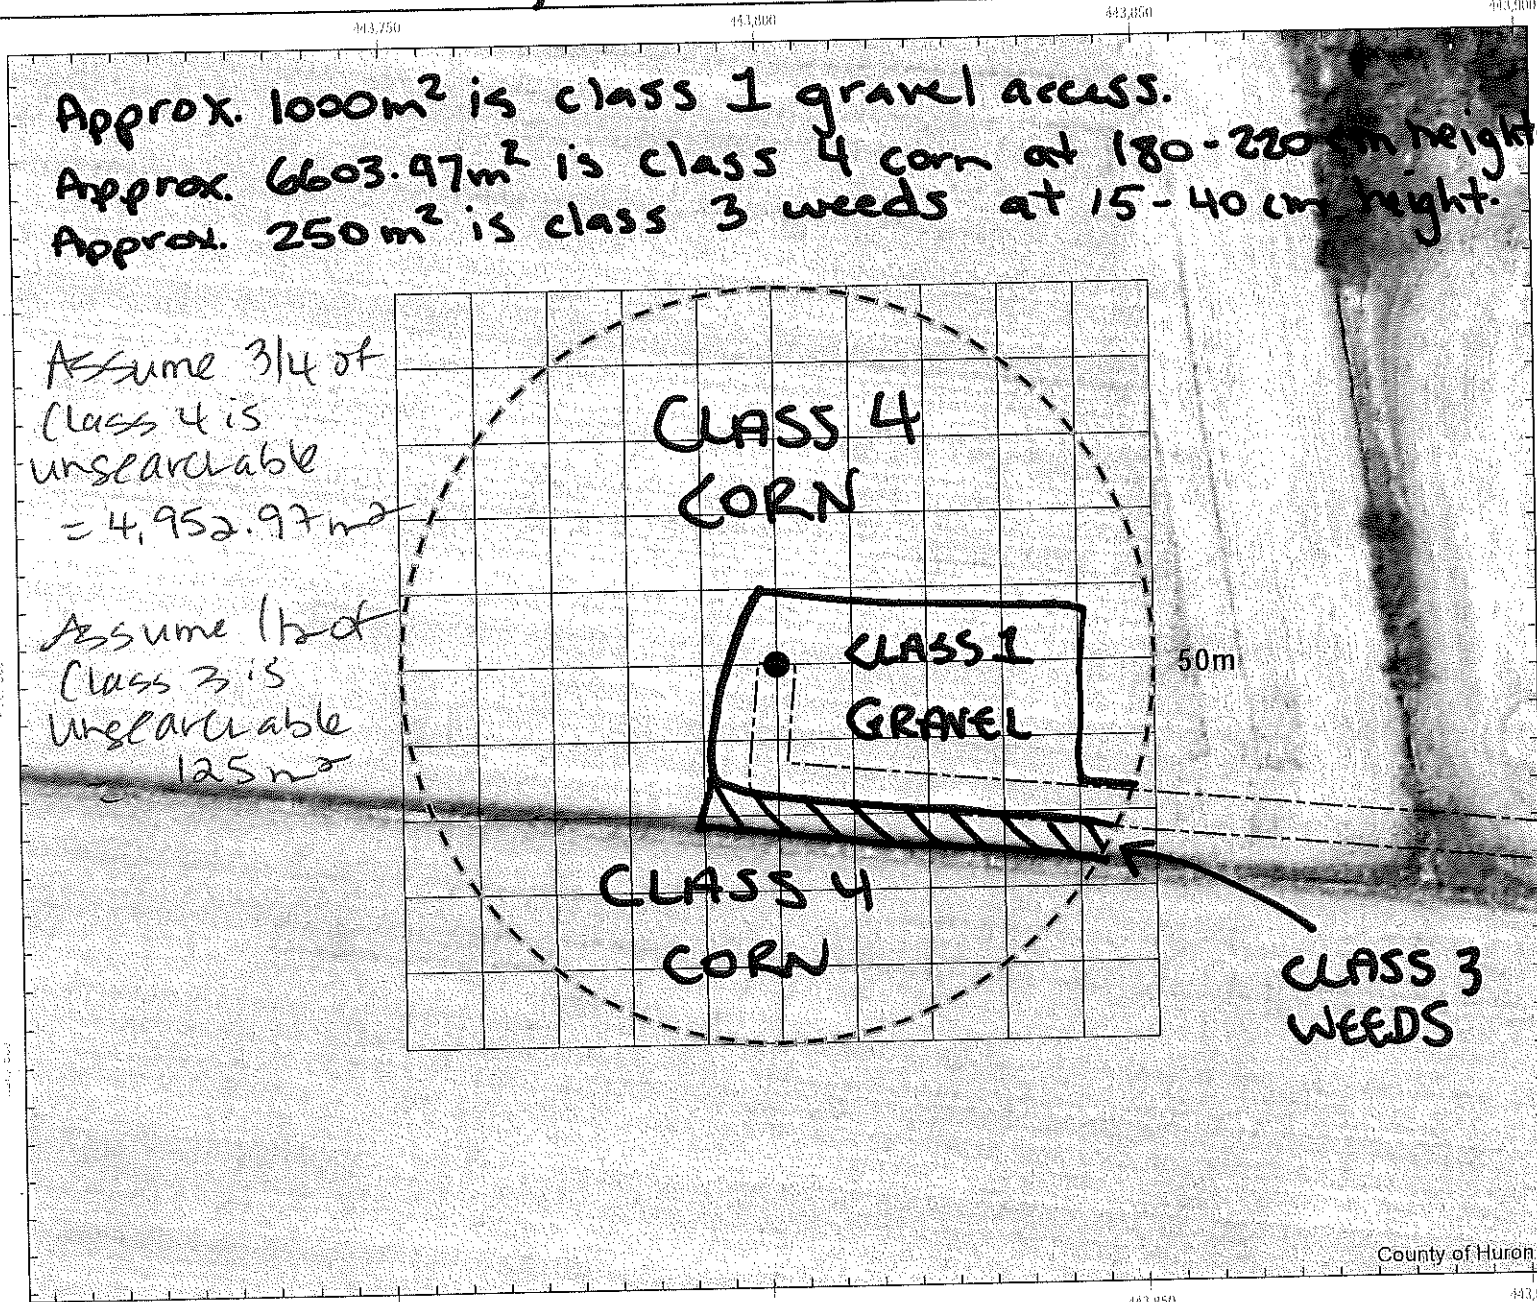 443,750
443,800
443,850
443,900
Approx. 1000m² is class 1 gravel access.
Approx. 6603.97m² is class 4 corn at 180-220cm height
Approx. 250m² is class 3 weeds at 15-40cm height.
Assume 3/4 of
Class 4 is
unsearchable
= 4,952.97m²
CLASS 4
CORN
Assume 1/2 of
Class 3 is
unsearchable
= 125m²
CLASS 1
GRAVEL
50m
CLASS 4
CORN
CLASS 3
WEEDS
County of Huron
443,850